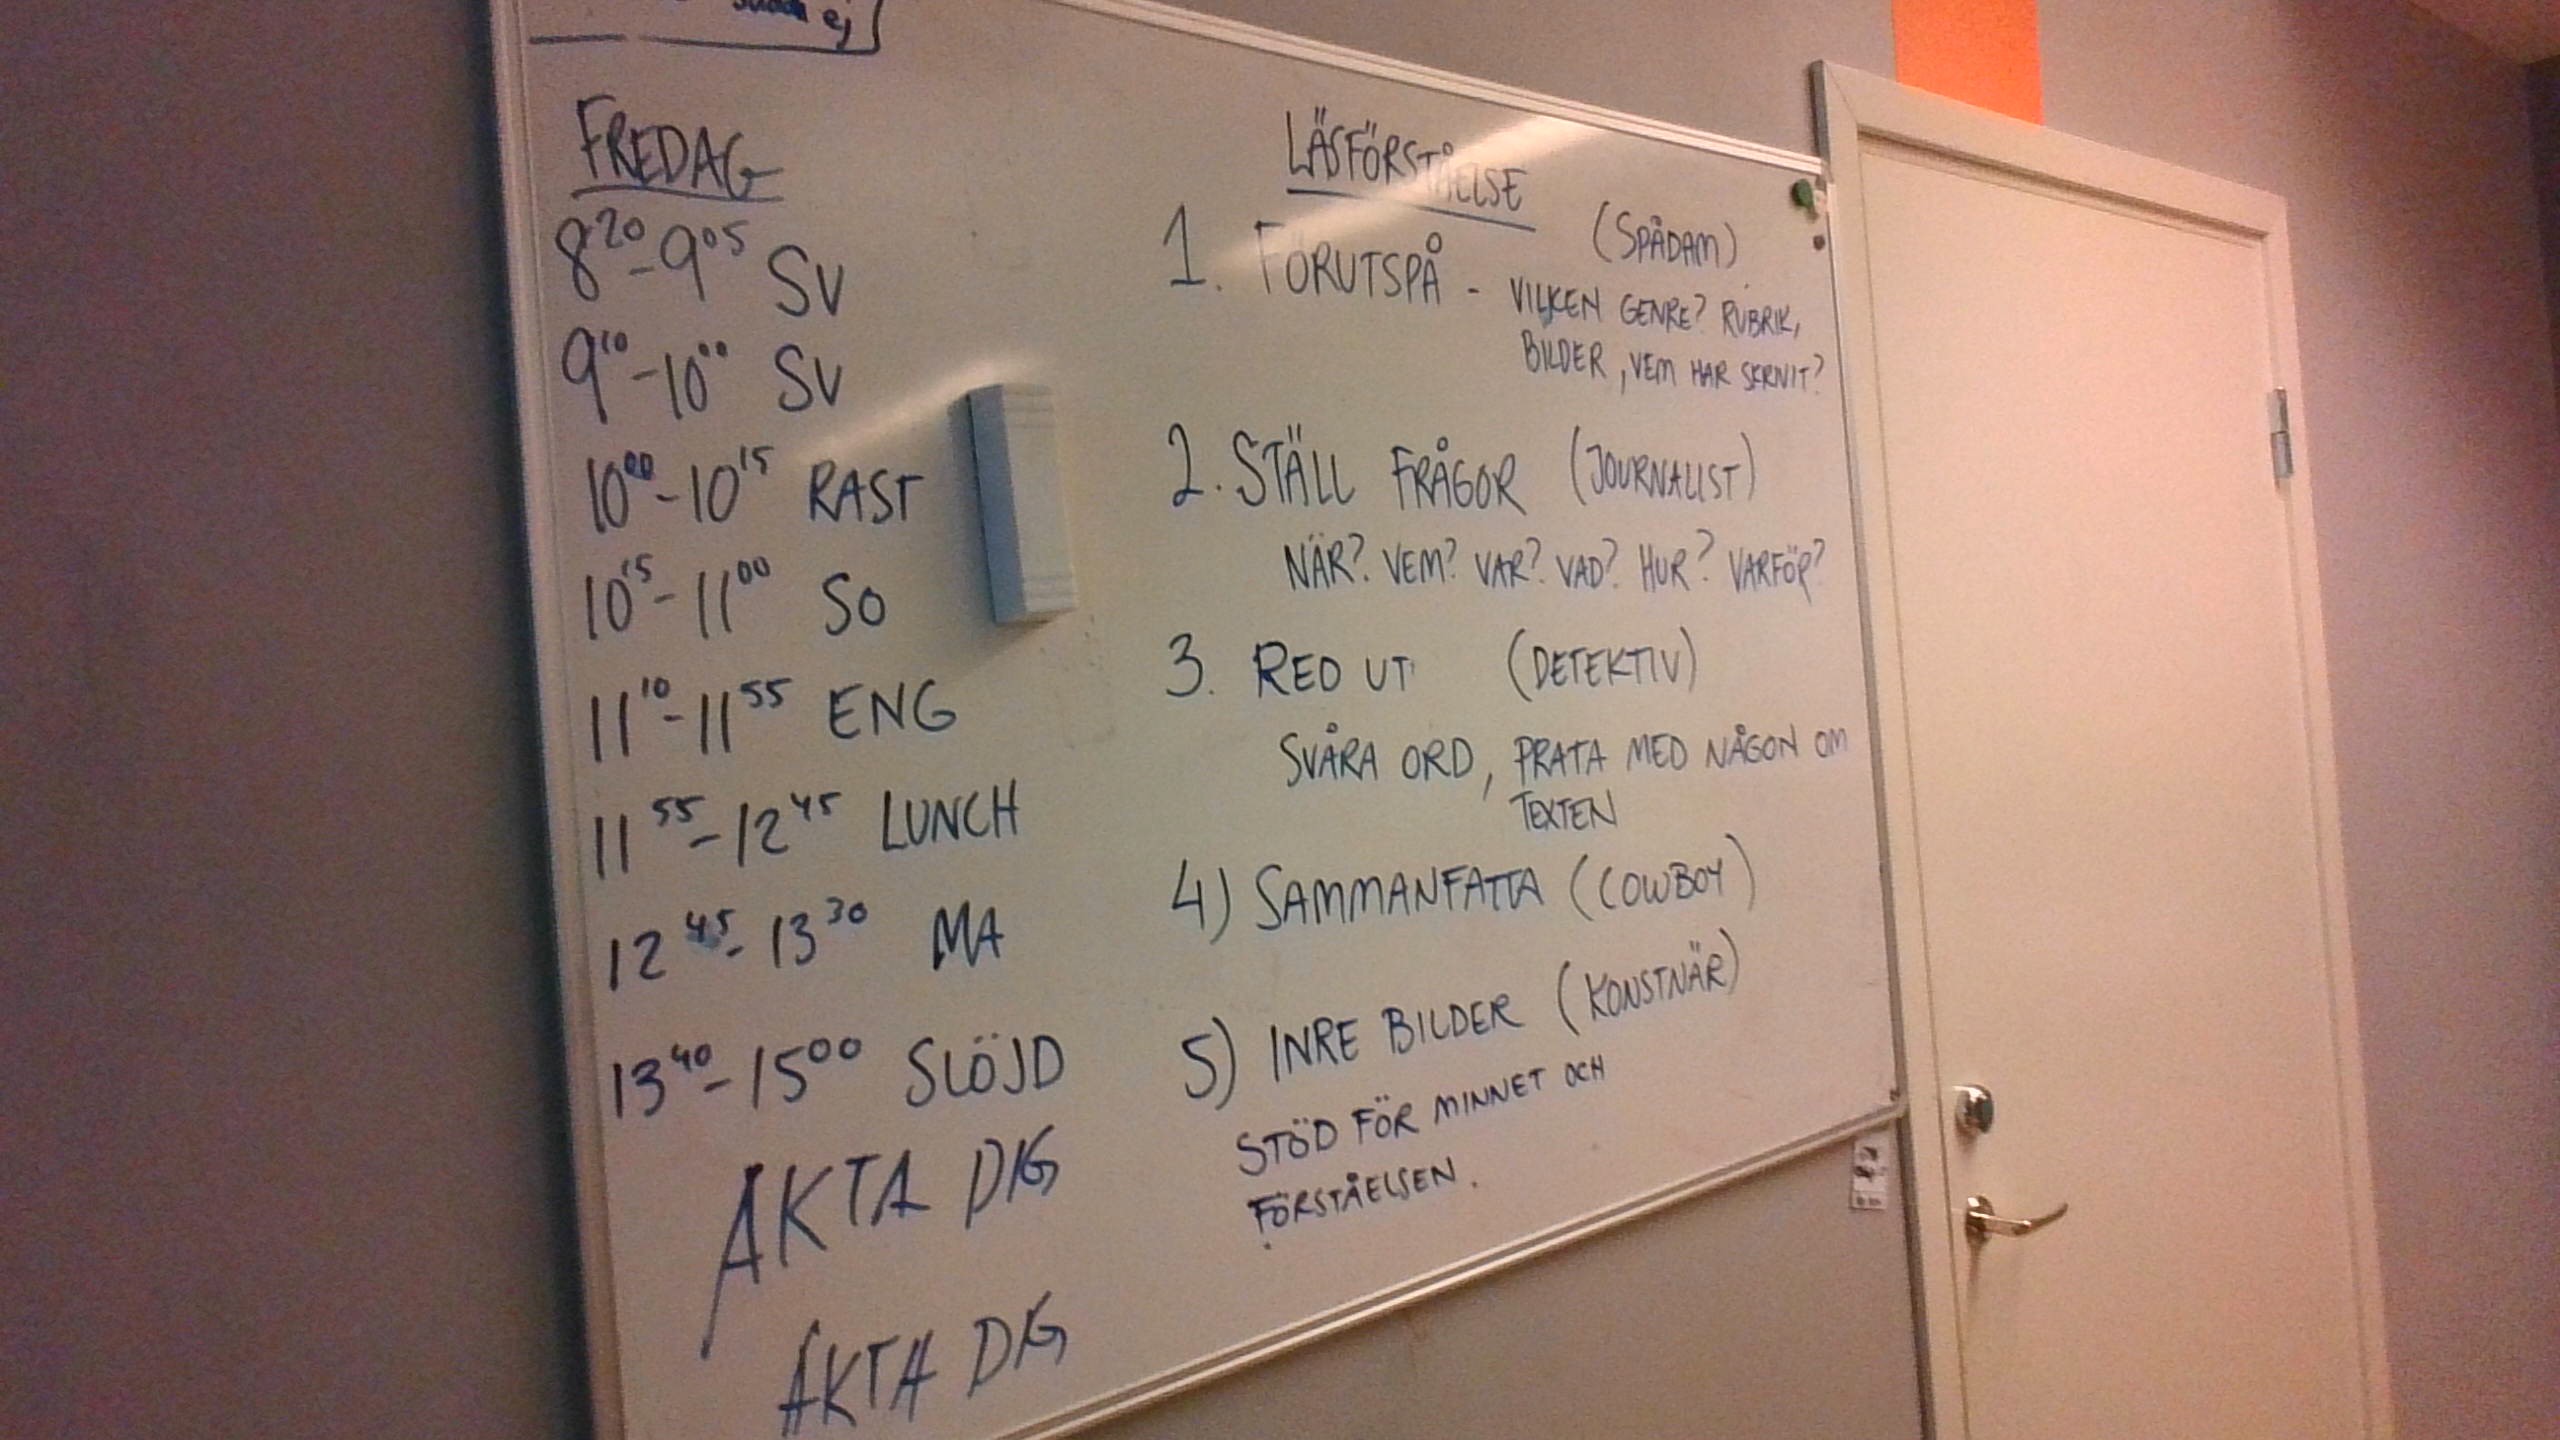 ej
FREDAG
8²⁰-9⁰⁵ SV
9¹⁰-10⁰⁰ SV
10⁰⁰-10¹⁵ RAST
10¹⁵-11⁰⁰ SO
11¹⁰-11⁵⁵ ENG
11⁵⁵-12⁴⁵ LUNCH
12⁴⁵-13³⁰ MA
13⁴⁰-15⁰⁰ SLÖJD
AKTA DIG
AKTA DIG
LÄSFÖRSTÅELSE
(SPÅDAM)
1. FÖRUTSPÅ - VILKEN GENRE? RUBRIK,
BILDER, VEM HAR SKRIVIT?
2. STÄLL FRÅGOR (JOURNALIST)
NÄR? VEM? VAR? VAD? HUR? VARFÖR?
3. RED UT (DETEKTIV)
SVÅRA ORD, PRATA MED NÅGON OM
TEXTEN
4) SAMMANFATTA (COWBOY)
5) INRE BILDER (KONSTNÄR)
STÖD FÖR MINNET OCH
FÖRSTÅELSEN.